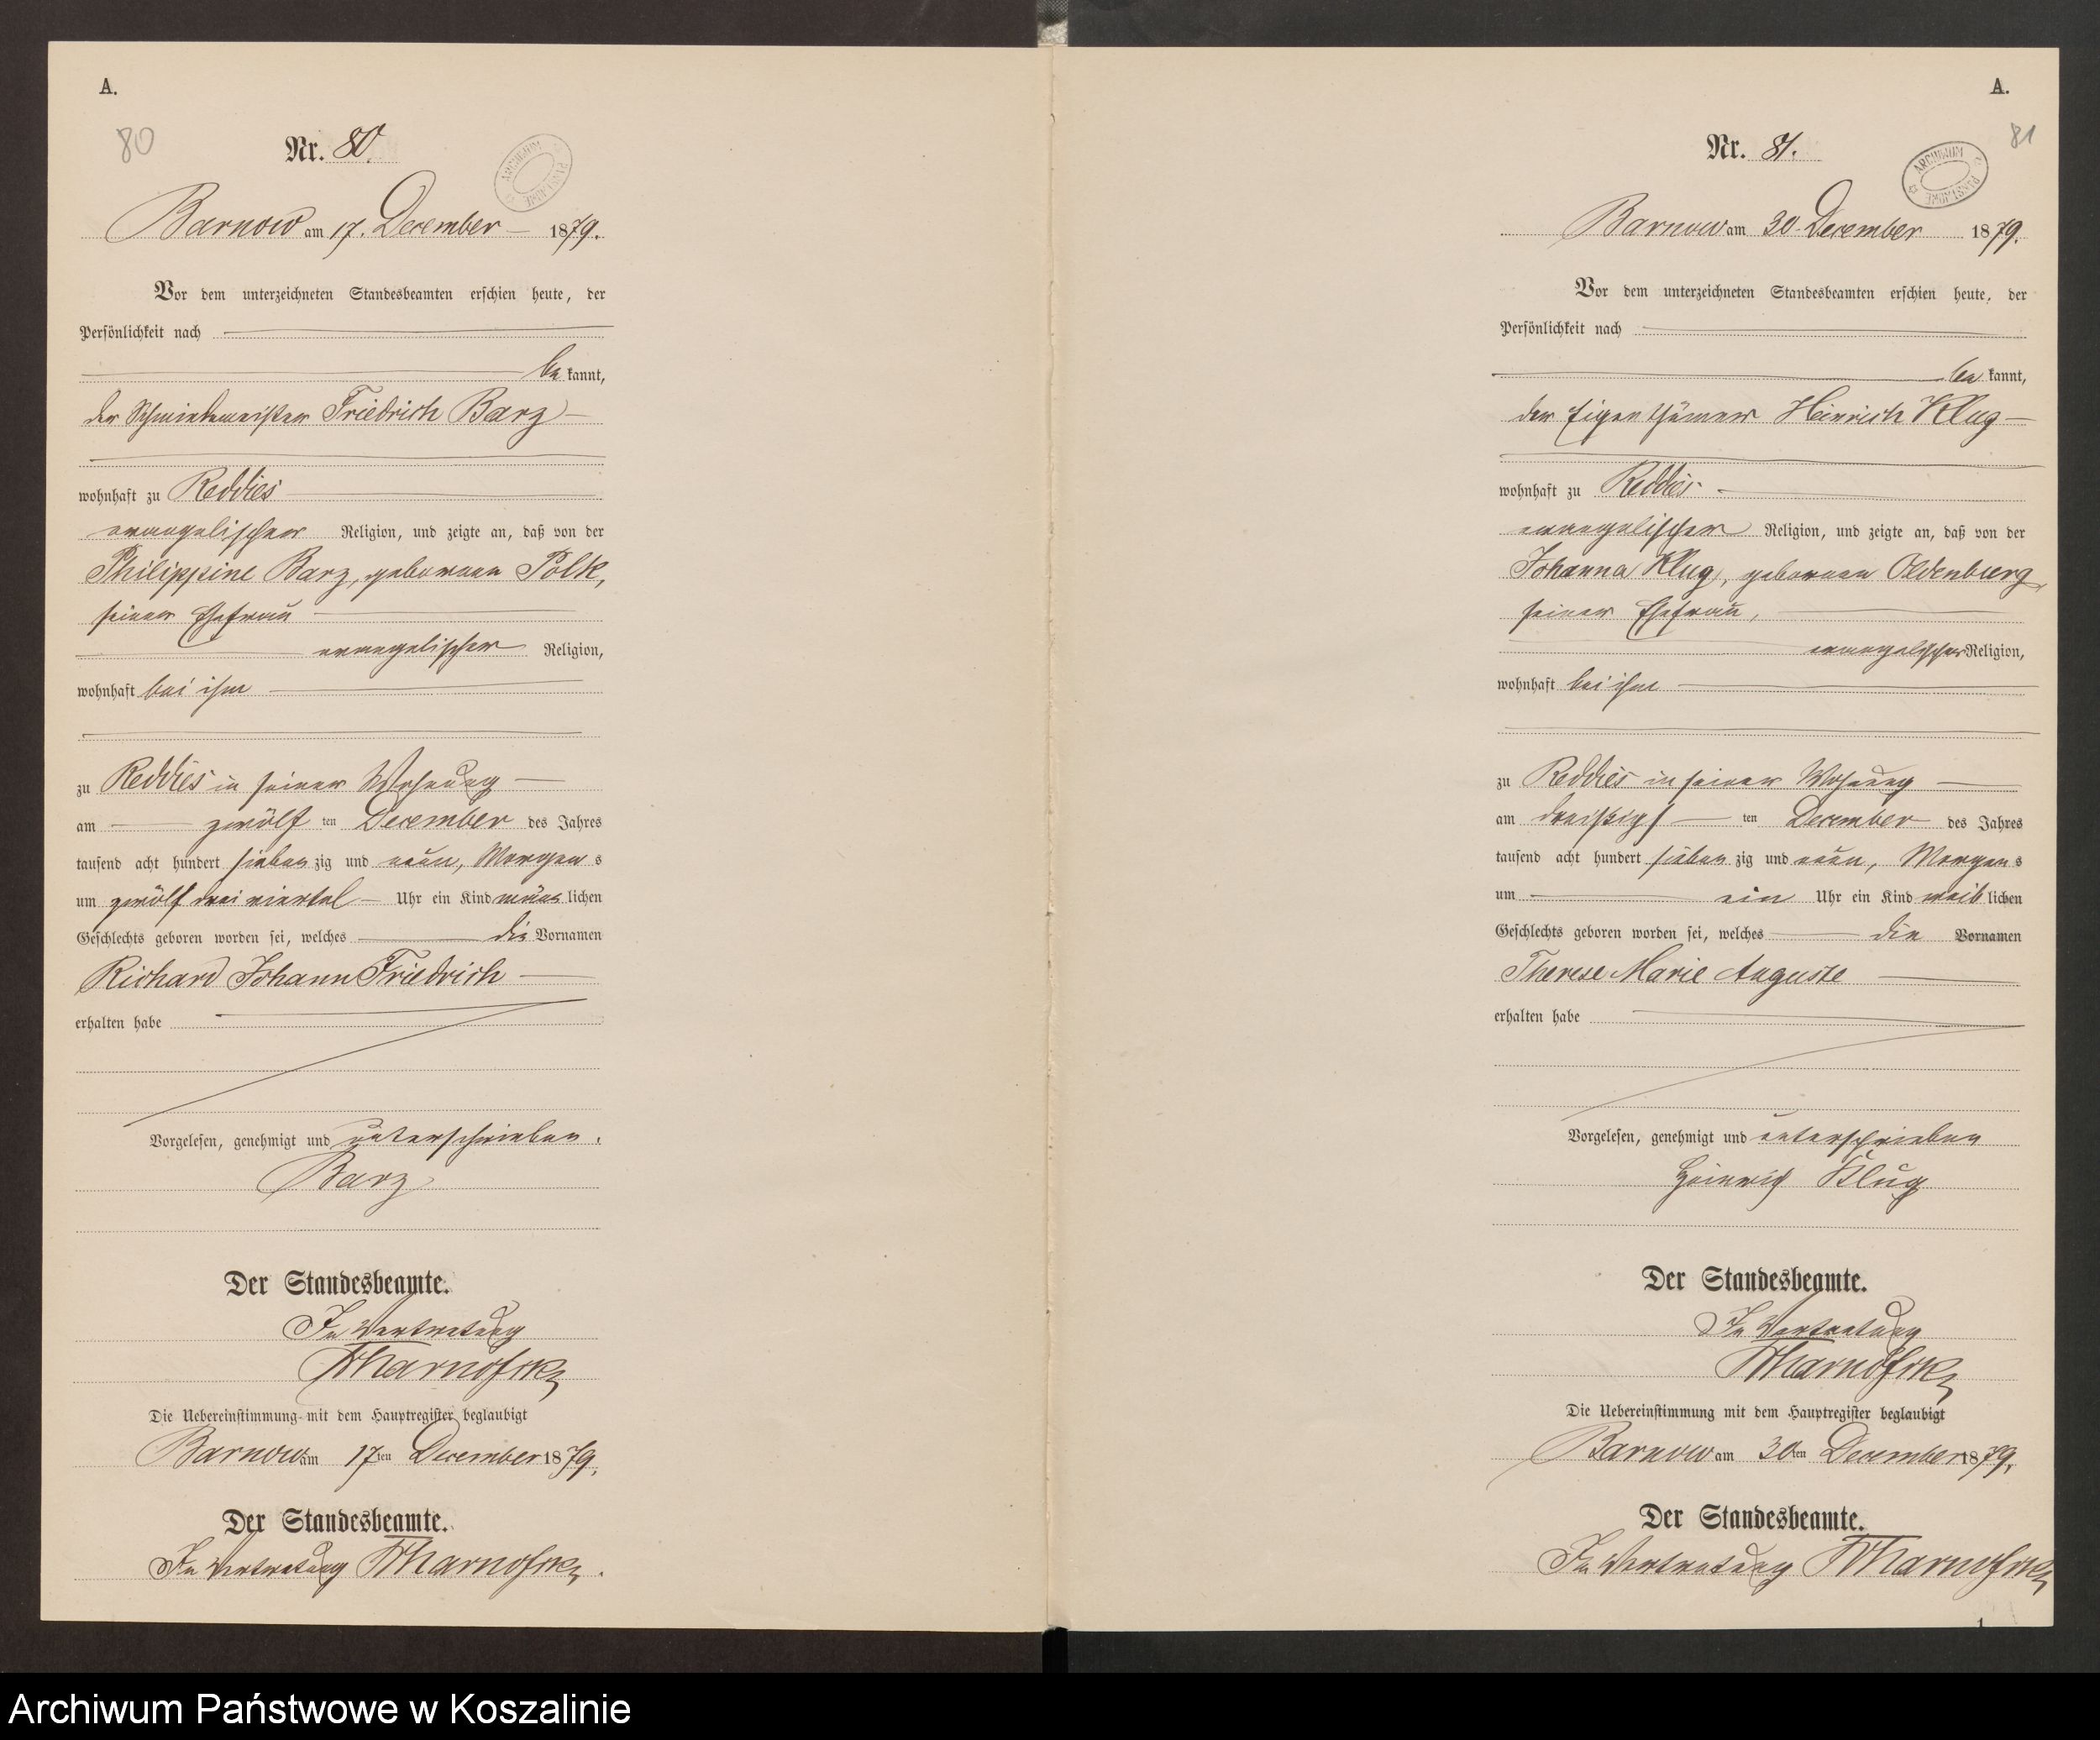 A.
80
Nr. 80.
ARCHIWUM PAŃSTWOWE
Barnow am 17. December 1879.
Vor dem unterzeichneten Standesbeamten erschien heute, der
Persönlichkeit nach
bekannt,
der Schmiedemeister Friedrich Barz
wohnhaft zu Reddies
evangelischer Religion, und zeigte an, daß von der
Philippine Barz, geborenen Polk,
seiner Ehefrau
evangelischer Religion,
wohnhaft bei ihm
zu Reddies in seiner Wohnung
am zwölf ten December des Jahres
tausend acht hundert siebenzig und neun, Morgens
um zwölf drei viertel Uhr ein Kind männlichen
Geschlechts geboren worden sei, welches die Vornamen
Richard Johann Friedrich
erhalten habe
Vorgelesen, genehmigt und unterschrieben.
Barz
Der Standesbeamte.
In Vertretung
Die Uebereinstimmung mit dem Hauptregister beglaubigt
Barnow am 17ten December 1879.
Der Standesbeamte.
In Vertretung
A.
81
Nr. 81.
ARCHIWUM PAŃSTWOWE
Barnow am 30. December 1879.
Vor dem unterzeichneten Standesbeamten erschien heute, der
Persönlichkeit nach
bekannt,
der Eigenthümer Heinrich Klug
wohnhaft zu Reddies
evangelischer Religion, und zeigte an, daß von der
Johanna Klug, geborenen Oldenburg,
seiner Ehefrau,
evangelischer Religion,
wohnhaft bei ihm
zu Reddies in seiner Wohnung
am dreißigs ten December des Jahres
tausend acht hundert siebenzig und neun, Morgens
um ein Uhr ein Kind weiblichen
Geschlechts geboren worden sei, welches die Vornamen
Therese Marie Auguste
erhalten habe
Vorgelesen, genehmigt und unterschrieben
Heinrich Klug
Der Standesbeamte.
In Vertretung
Die Uebereinstimmung mit dem Hauptregister beglaubigt
Barnow am 30ten December 1879.
Der Standesbeamte.
In Vertretung
1
Archiwum Państwowe w Koszalinie